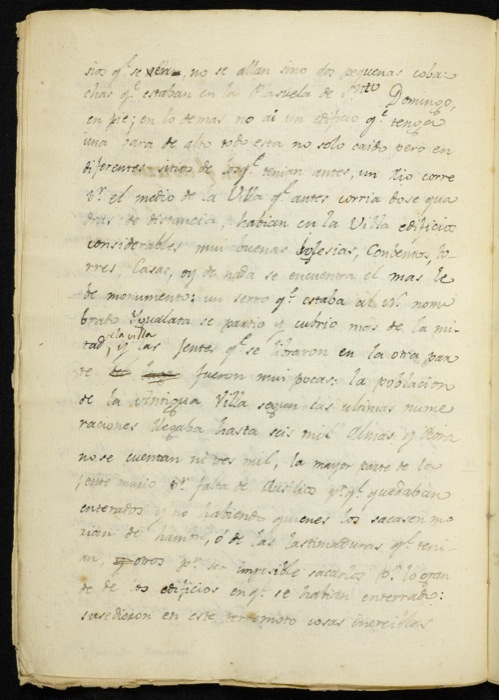 sios q.e se , no se allan sino dos pequenas coba-
chas q.e estaban en la Plasuela de S.nto Domingo,
en pie; en lo demas no ai un edificio q.e tenga
una bara de alto todo esta no solo caido pero en
diferentes sitios de los q.e tenian antes, un Rio corre
p.r el medio de la Villa q.e antes corria dose qua
dras de distancia, habian en la Villa edificios
considerables mui buenas Iglesias, Conbentos, to-
rres, Casas, oy dia nada se encuentra el mas le
be monumento: un serro q.e estaba al N. nom
brado se partio y cubrio mas de la mi-
tad, de la villa y las Jentes q.e se libraron en la otra par
te fueron mui pocas: la poblacion
de la Antigua Villa segun sus ultimas nume
raciones llegaba hasta seis mil Almas, y aora
no se cuentan ni tres mil, la mayor parte de la
jente murio p.r falta de Ausilio p.r q.e quedaban
enterrados y no habiendo quienes los sacasen mo
rian de hambre, ó de las lastimaduras q.e teni-
an, y otros p.r ser imposible sacarlos p.r lo gran
de de los edificios en q.e se habian enterrado:
susedieron en este terremoto cosas increibles